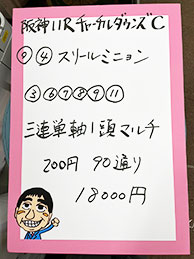 阪神11RチャーチルダウンズC
◎ ④ スリールミニョン
③⑥⑦⑧⑨⑪
三連単軸1頭マルチ
200円 90通り
18000円